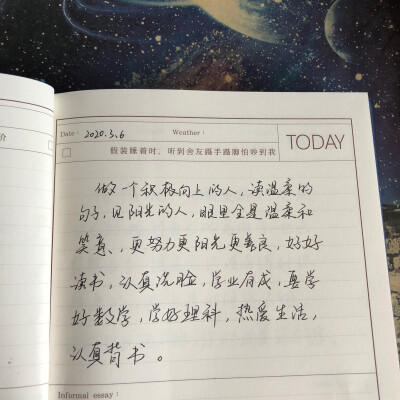 价
Date: 2020.3.6 Weather:
TODAY
假装睡着时,听到舍友蹑手蹑脚怕吵到我
做一个积极向上的人,读温柔的
句子,见阳光的人,眼里全是温柔和
笑意、,更努力更阳光更善良,好好
读书,认真洗脸,学业有成,要学
好数学,学好理科,热爱生活,
认真背书。
Informal essay: